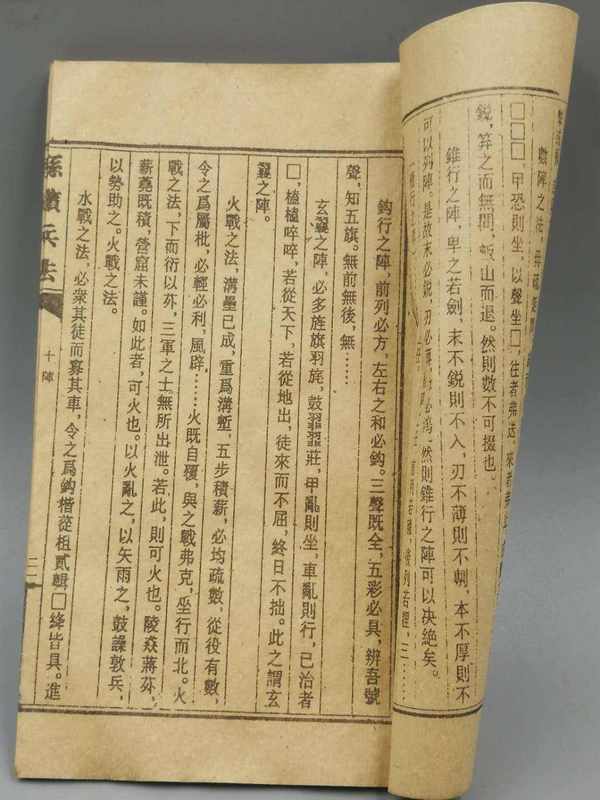 數陣之法
□□□,甲恐則坐,以聲坐□,往者弗送,來者弗止
銳,笲之而無間,䡊山而退。然則數不可掇也。
錐行之陣,卑之若劍,末不銳則不入,刃不薄則不剸,本不厚則不
可以列陣。是故末必銳,刃必薄,本必鴻。然則錐行之陣可以夬絶矣。
鈎行之陣,前列必方,左右之和必鈎。三聲既全,五彩必具,辨吾號
聲,知五旗。無前無後,無……
玄翼之陣,必多旌旗羽旄,鼓翟翟莊,甲亂則坐,車亂則行,已治者
□,榼榼啐啐,若從天下,若從地出,徒來而不屈,終日不拙。此之謂玄
翼之陣。
火戰之法,溝壘已成,重爲溝塹,五步積薪,必均疏數,從役有數,
令之爲屬枇,必輕必利,風辟……火既自覆,與之戰弗克,坐行而北。火
戰之法,下而衍以䒜,三軍之士無所出泄。若此,則可火也。陵猋蔣䒜,
薪蕘既積,營窟未謹。如此者,可火也。以火亂之,以矢雨之,鼓譟敦兵,
以勢助之。火戰之法。
水戰之法,必衆其徒而寡其車,令之爲鈎楷蓯柤貳輯□絳皆具。進
孫臏兵法
十陣